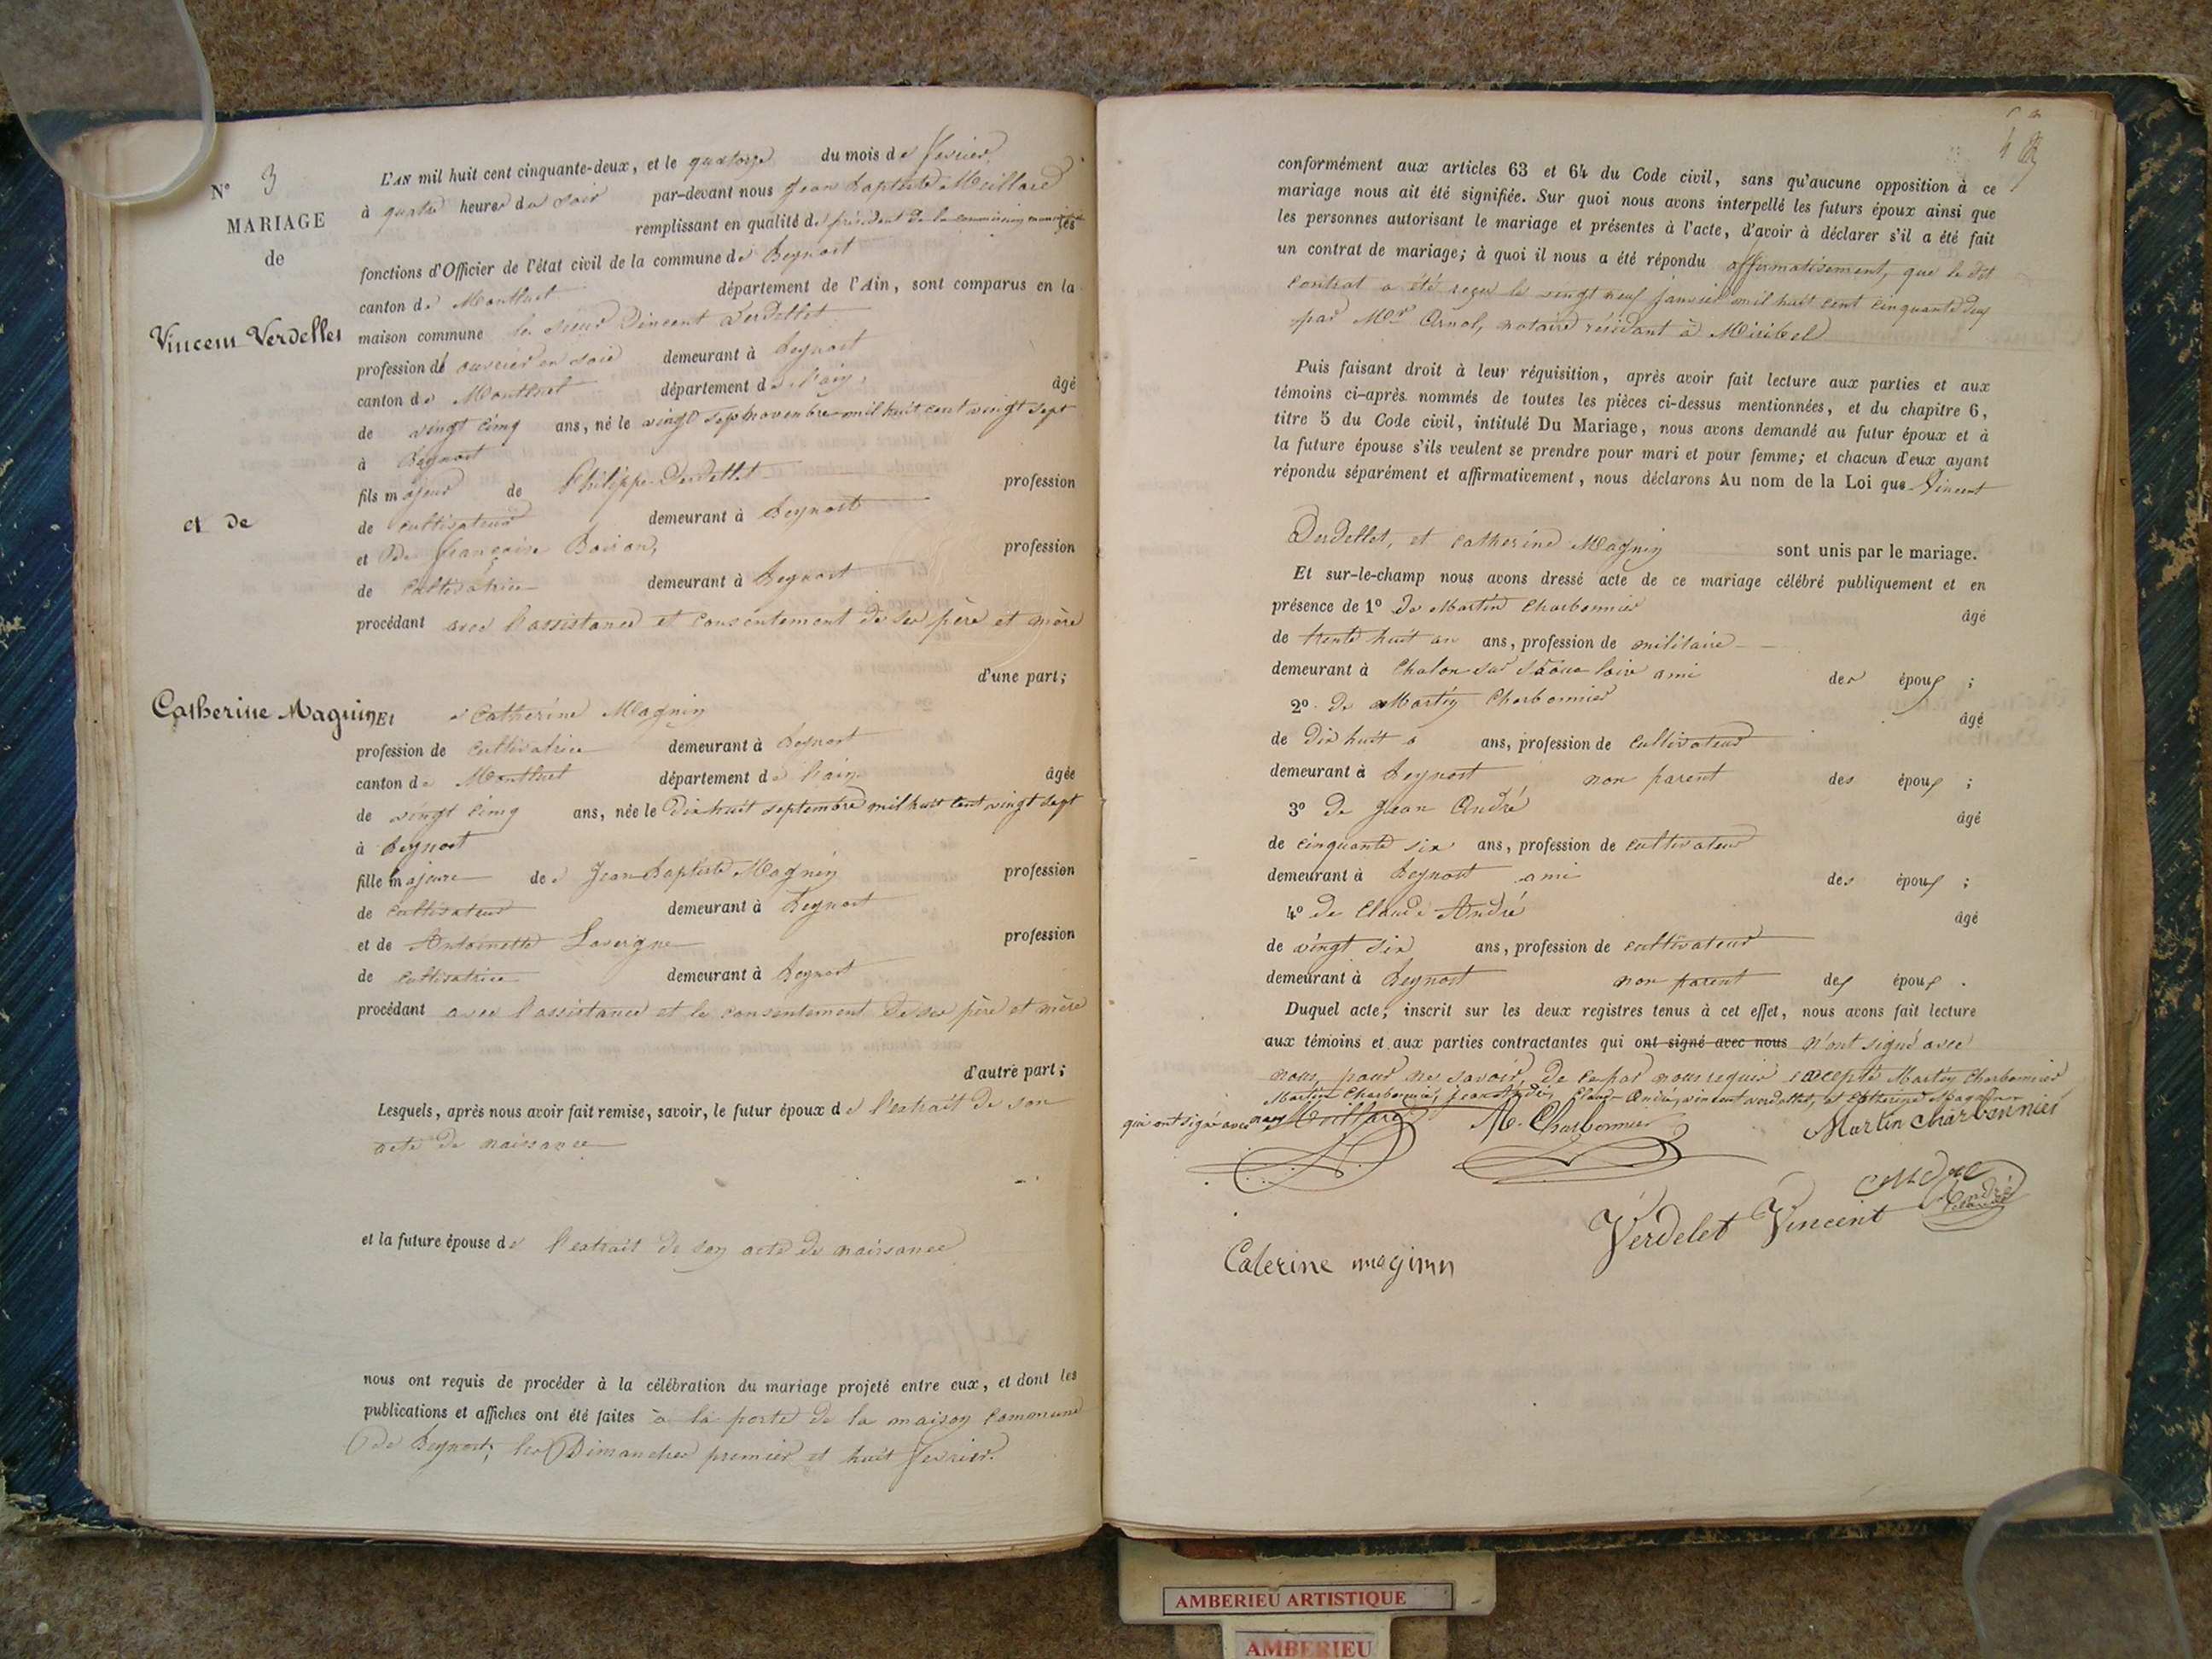 N° 3
MARIAGE
de
Vincent Verdellet
et de
Catherine Magnin
L'AN mil huit cent cinquante-deux, et le quatorze du mois de fevrier
à quatre heures du soir par-devant nous Jean Baptiste Meillard
remplissant en qualité de président de la commission municipale les
fonctions d'Officier de l'état civil de la commune de Beynost
canton de Montluel département de l'Ain, sont comparus en la
maison commune le sieur Vincent Verdellet
profession de ouvrier en soie demeurant à Beynost
canton de Montluel département de l'ain, âgé
de vingt cinq ans, né le vingt sept novembre mil huit cent vingt sept
à Beynost
fils majeur de Philippe Verdellet profession
de cultivateur demeurant à Beynost
et De françoise Boiron, profession
de cultivatrice demeurant à Beynost
procédant avec l'assistance et consentement de ses père et mère
d'une part;
Et Catherine Magnin
profession de cultivatrice demeurant à Beynost
canton de Montluel département de l'ain âgée
de vingt cinq ans, née le Dix huit septembre mil huit cent vingt sept
à Beynost
fille majeure de Jean Baptiste Magnin profession
de cultivateur demeurant à Beynost
et de Antoinette Lavergne profession
de cultivatrice demeurant à Beynost
procédant avec l'assistance et le consentement de ses père et mère
d'autre part;
Lesquels, après nous avoir fait remise, savoir, le futur époux de l'extrait de son
acte de naissance
et la future épouse de l'extrait de son acte de naissance
nous ont requis de procéder à la célébration du mariage projeté entre eux, et dont les
publications et affiches ont été faites à la porte de la maison commune
de Beynost, les Dimanches premier et huit fevrier.
conformément aux articles 63 et 64 du Code civil, sans qu'aucune opposition à ce
mariage nous ait été signifiée. Sur quoi nous avons interpellé les futurs époux ainsi que
les personnes autorisant le mariage et présentes à l'acte, d'avoir à déclarer s'il a été fait
un contrat de mariage; à quoi il nous a été répondu affirmativement, que le dit
contrat a été reçu le vingt neuf janvier mil huit cent cinquante deux
par Mr Arnol, notaire résidant à Miribel
Puis faisant droit à leur réquisition, après avoir fait lecture aux parties et aux
témoins ci-après nommés de toutes les pièces ci-dessus mentionnées, et du chapitre 6,
titre 5 du Code civil, intitulé Du Mariage, nous avons demandé au futur époux et à
la future épouse s'ils veulent se prendre pour mari et pour femme; et chacun d'eux ayant
répondu séparément et affirmativement, nous déclarons Au nom de la Loi que Vincent
Verdellet, et catherine Magnin sont unis par le mariage.
Et sur-le-champ nous avons dressé acte de ce mariage célébré publiquement et en
présence de 1° de Martin Charbonnier âgé
de trente huit an ans, profession de militaire
demeurant à Chalon sur saône loire ami des époux ;
2° De Martin Charbonnier âgé
de Dix huit a ans, profession de cultivateur
demeurant à Beynost non parent des époux ;
3° De Jean André âgé
de cinquante six ans, profession de cultivateur
demeurant à Beynost ami des époux ;
4° de Claude André âgé
de vingt six ans, profession de cultivateur
demeurant à Beynost non parent des époux .
Duquel acte, inscrit sur les deux registres tenus à cet effet, nous avons fait lecture
aux témoins et aux parties contractantes qui ont signé avec nous n'ont signé avec
nous, pour ne savoir, de ce par nous requis excepté Martin Charbonnier
Martin Charbonnier, jean André, Claude André, vincent verdellet, et Catherine Magnin
qui ont signé avec nous Meillard M. Charbonnier Martin Charbonnier
andré
André Claude
Verdelet Vincent
Caterine magimn
AMBERIEU ARTISTIQUE
AMBERIEU